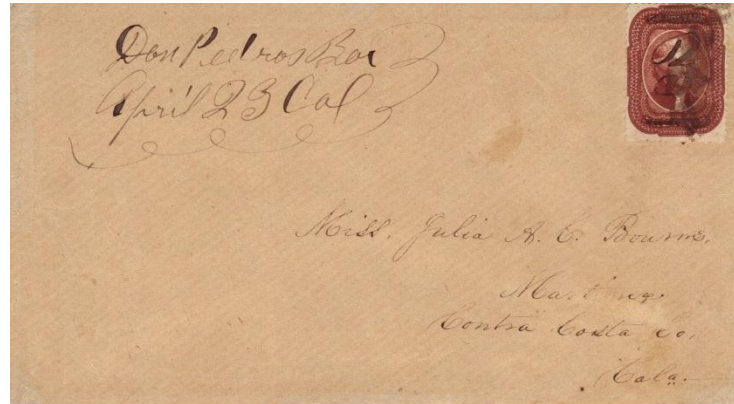 Don Pedros Bar
April 23 Cal
Miss. Julia A. C. Bourne.
Martinez.
Contra Costa Co,
Cala.